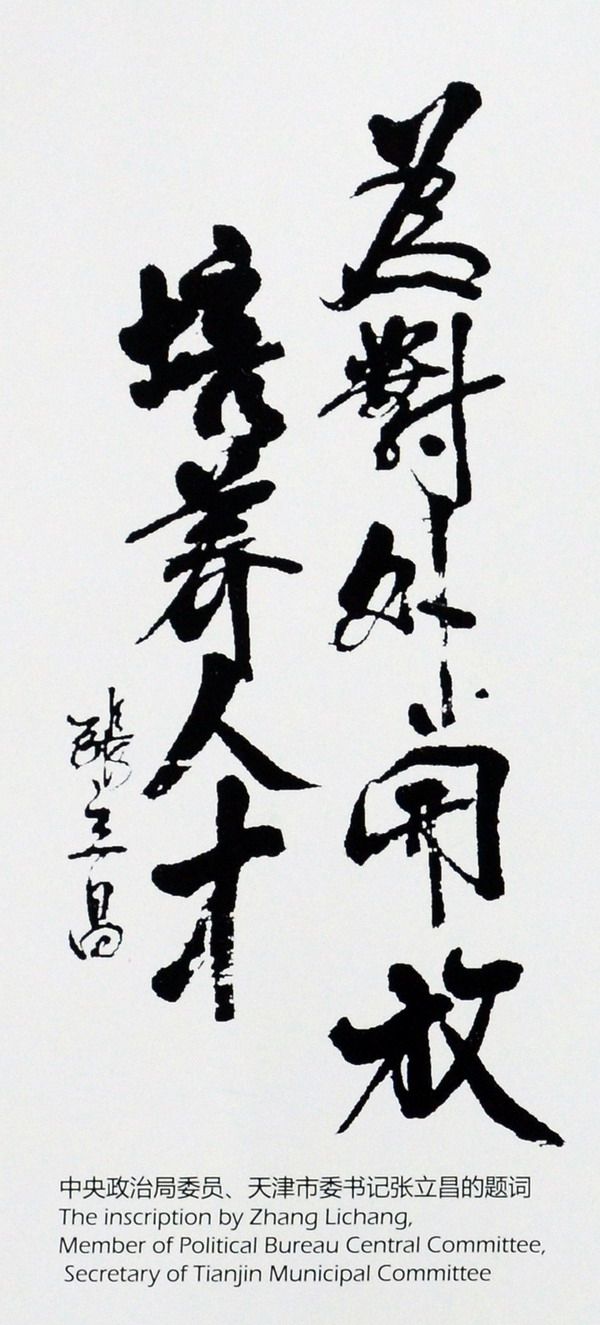 為對外開放
培养人才
張立昌
中央政治局委员、天津市委书记张立昌的题词
The inscription by Zhang Lichang,
Member of Political Bureau Central Committee,
Secretary of Tianjin Municipal Committee